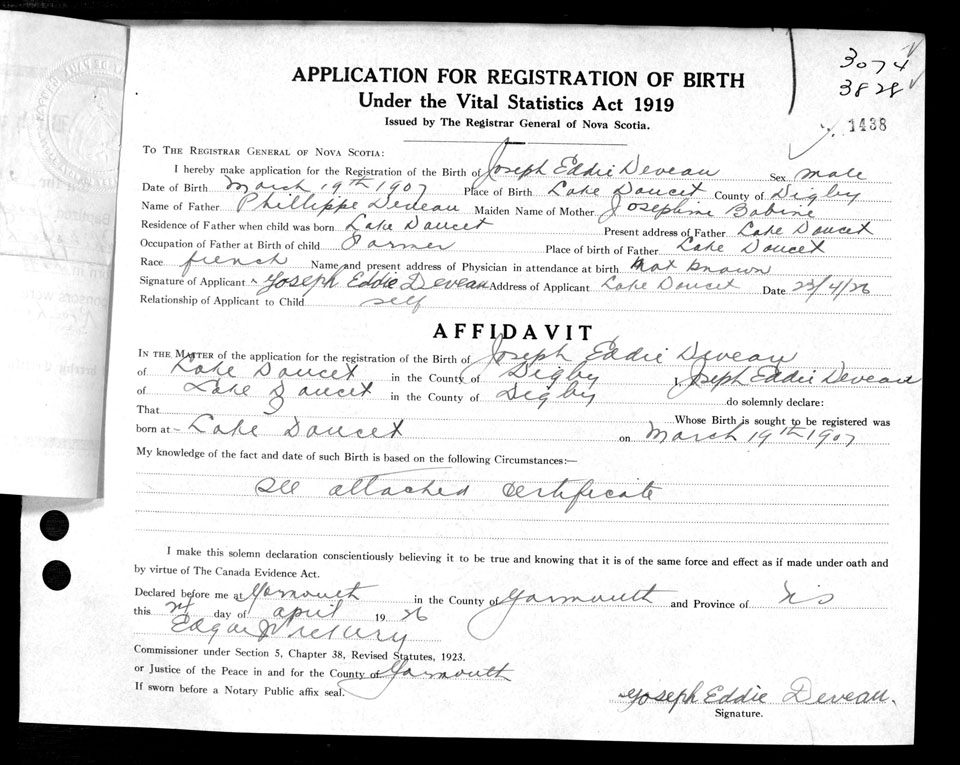 3074
3828
1438
APPLICATION FOR REGISTRATION OF BIRTH
Under the Vital Statistics Act 1919
Issued by The Registrar General of Nova Scotia.
TO THE REGISTRAR GENERAL OF NOVA SCOTIA:
I hereby make application for the Registration of the Birth of Joseph Eddie Deveau Sex male
Date of Birth March 19th 1907 Place of Birth Lake Doucet County of Digby
Name of Father Phillippe Deveau Maiden Name of Mother Josephine Babine
Residence of Father when child was born Lake Doucet Present address of Father Lake Doucet
Occupation of Father at Birth of child Farmer Place of birth of Father Lake Doucet
Race french Name and present address of Physician in attendance at birth not known
Signature of Applicant Joseph Eddie Deveau Address of Applicant Lake Doucet Date 23/4/26
Relationship of Applicant to Child self
AFFIDAVIT
IN THE MATTER of the application for the registration of the Birth of Joseph Eddie Deveau
of Lake Doucet in the County of Digby I, Joseph Eddie Deveau
of Lake Doucet in the County of Digby do solemnly declare:
That Whose Birth is sought to be registered was
born at Lake Doucet on March 19th 1907
My knowledge of the fact and date of such Birth is based on the following Circumstances:—
see attached certificate
I make this solemn declaration conscientiously believing it to be true and knowing that it is of the same force and effect as if made under oath and
by virtue of The Canada Evidence Act.
Declared before me at Yarmouth in the County of Yarmouth and Province of NS
this day of april 1926
Edgar
Commissioner under Section 5, Chapter 38, Revised Statutes, 1923.
or Justice of the Peace in and for the County of Yarmouth
If sworn before a Notary Public affix seal.
Joseph Eddie Deveau.
Signature.